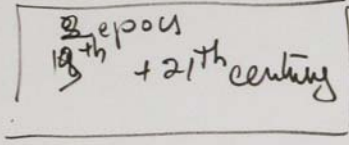 2 epocs
18th + 21th century